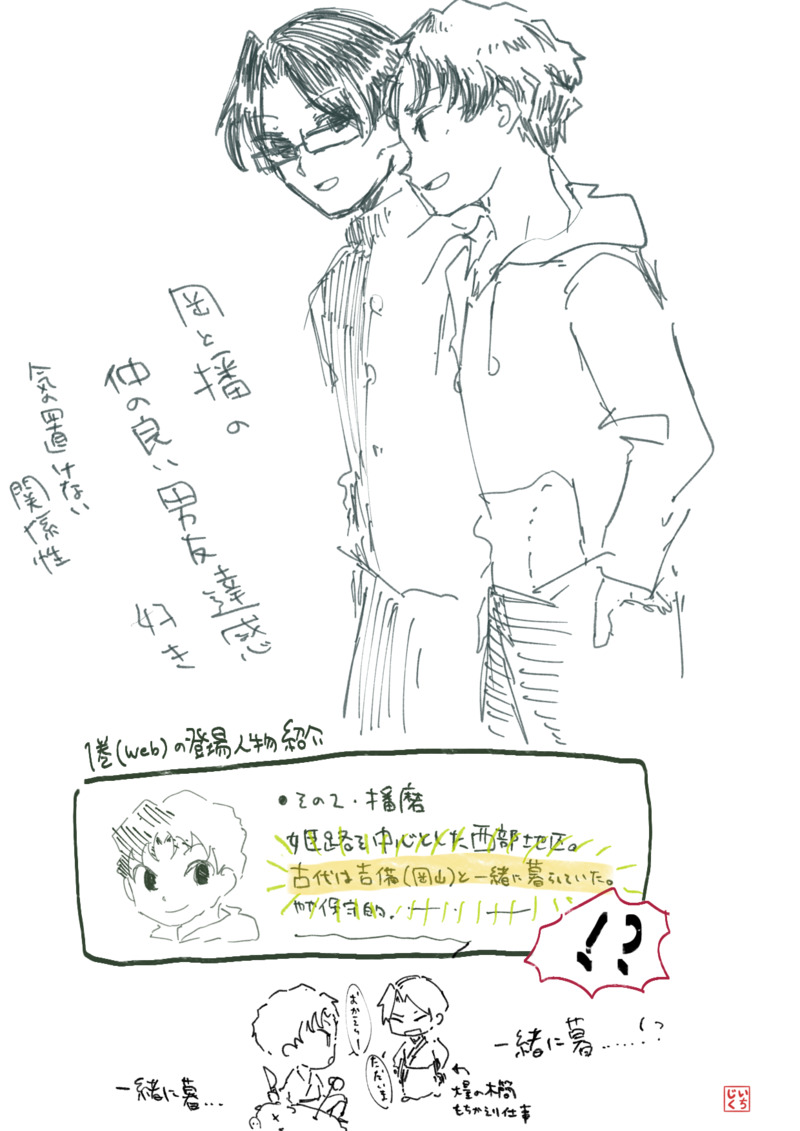 岡と播の
仲の良い男友達感
好き
気の置けない
関係性
1巻(web)の登場人物紹介
●その2・播磨
姫路を中心とした西部地区。
古代は吉備(岡山)と一緒に暮らしていた。
やや保守的。
!?
おかえりー
ただいま
一緒に暮……!?
一緒に暮…
木簡
もちかえり仕事
いち
じく